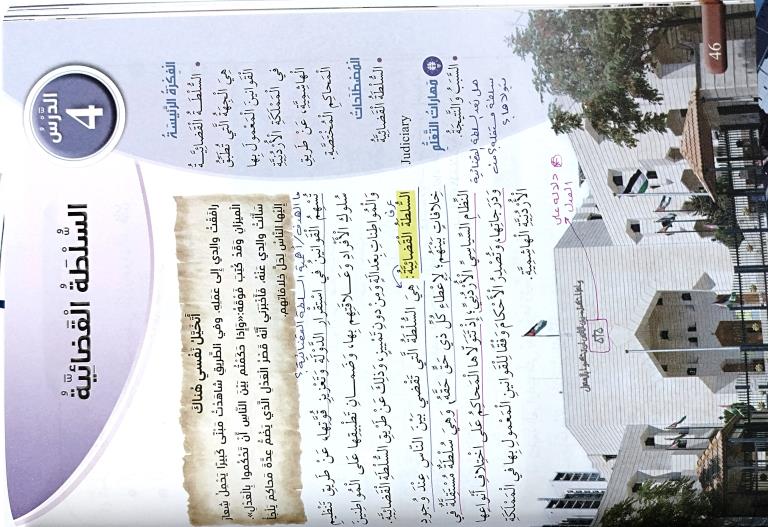 الدَّرْسُ
4
السُّلْطَةُ الْقَضَائِيَّةُ
الفِكْرَةُ الرَّئيسَةُ
• السُّلْطَةُ القَضائِيَّةُ
هِيَ الْجِهَةُ الَّتي تُطَبِّقُ
القَوانينَ المَعْمولَ بِها
في المَمْلَكَةِ الأُرْدُنِّيَّةِ
الهاشِمِيَّةِ عَنْ طَريقِ
المَحاكِمِ المُخْتَصَّةِ.
المُصْطَلَحاتُ
• السُّلْطَةُ القَضائِيَّةُ
Judiciary
مَهاراتُ التَّعَلُّمِ
• السَّبَبُ وَالنَّتيجَةُ
هل تعد السلطة القضائية
سلطة مستقلة؟ من
يتولاها؟
أَتَخَيَّلُ نَفْسي هُناكَ
رافَقْتُ والِدي إِلى عَمَلِهِ، وَفي الطَّريقِ شاهَدْتُ مَبْنًى كَبيرًا يَحْمِلُ شِعارَ
الميزانِ وَقَدْ كُتِبَ فَوْقَهُ: «وَإِذا حَكَمْتُمْ بَيْنَ النّاسِ أَنْ تَحْكُموا بِالعَدْلِ»،
سَأَلْتُ والِدي عَنْهُ فَأَخْبَرَني أَنَّهُ قَصْرُ العَدْلِ الَّذي يَضُمُّ عِدَّةَ مَحاكِمَ يَلْجَأُ
إِلَيْها النّاسُ لِحَلِّ خِلافاتِهِمْ.
السلطة القضائية؟
تُسْهِمُ القَوانينُ في اسْتِقْرارِ الدَّوْلَةِ وَتَعْزيزِ قُوَّتِها، عَنْ طَريقِ تَنْظيمِ
سُلوكِ الأَفْرادِ وَعَلاقَتِهِمْ بِها، وَضَمانِ تَطْبيقِها عَلى المُواطِنينَ
وَالمُواطِناتِ بِعَدالَةٍ وَمِنْ دونِ تَمْييزٍ، وَذلِكَ عَنْ طَريقِ السُّلْطَةِ القَضائِيَّةِ.
عرف
السُّلْطَةُ القَضائِيَّةُ: هِيَ السُّلْطَةُ الَّتي تَقْضي بَيْنَ النّاسِ عِنْدَ وُجودِ
خِلافاتٍ بَيْنَهُمْ؛ لِإِعْطاءِ كُلِّ ذي حَقٍّ حَقَّهُ، وَهِيَ سُلْطَةٌ مُسْتَقِلَّةٌ في
النِّظامِ السِّياسِيِّ الأُرْدُنِّيِّ؛ إِذْ تَتَوَلّاها المَحاكِمُ عَلى اخْتِلافِ أَنْواعِها
وَدَرَجاتِها، وَتُصْدَرُ الأَحْكامُ وَفْقًا لِلْقَوانينِ المَعْمولِ بِها في المَمْلَكَةِ
الأُرْدُنِّيَّةِ الهاشِمِيَّةِ.
دلالة على
العدل
46